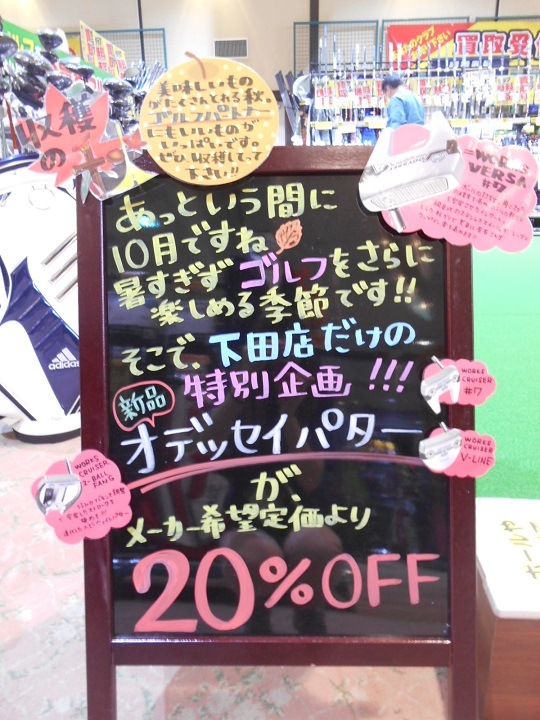 美味しいもの
がたくさんとれる秋。
ゴルフパートナー
にもいいものが
いっぱいです。
ぜひ収穫してって
下さい!!
収穫
の
買取
WORKS
VERSA
#7
あっという間に
10月ですね
暑すぎず ゴルフをさらに
楽しめる季節です!!
そこで、下田店だけの
特別企画!!!
新品
オデッセイパター
が、
メーカー希望定価より
20%OFF
WORKS
CRUISER
#7
WORKS
CRUISER
V-LINE
WORKS
CRUISER
2-BALL
FANG
adidas